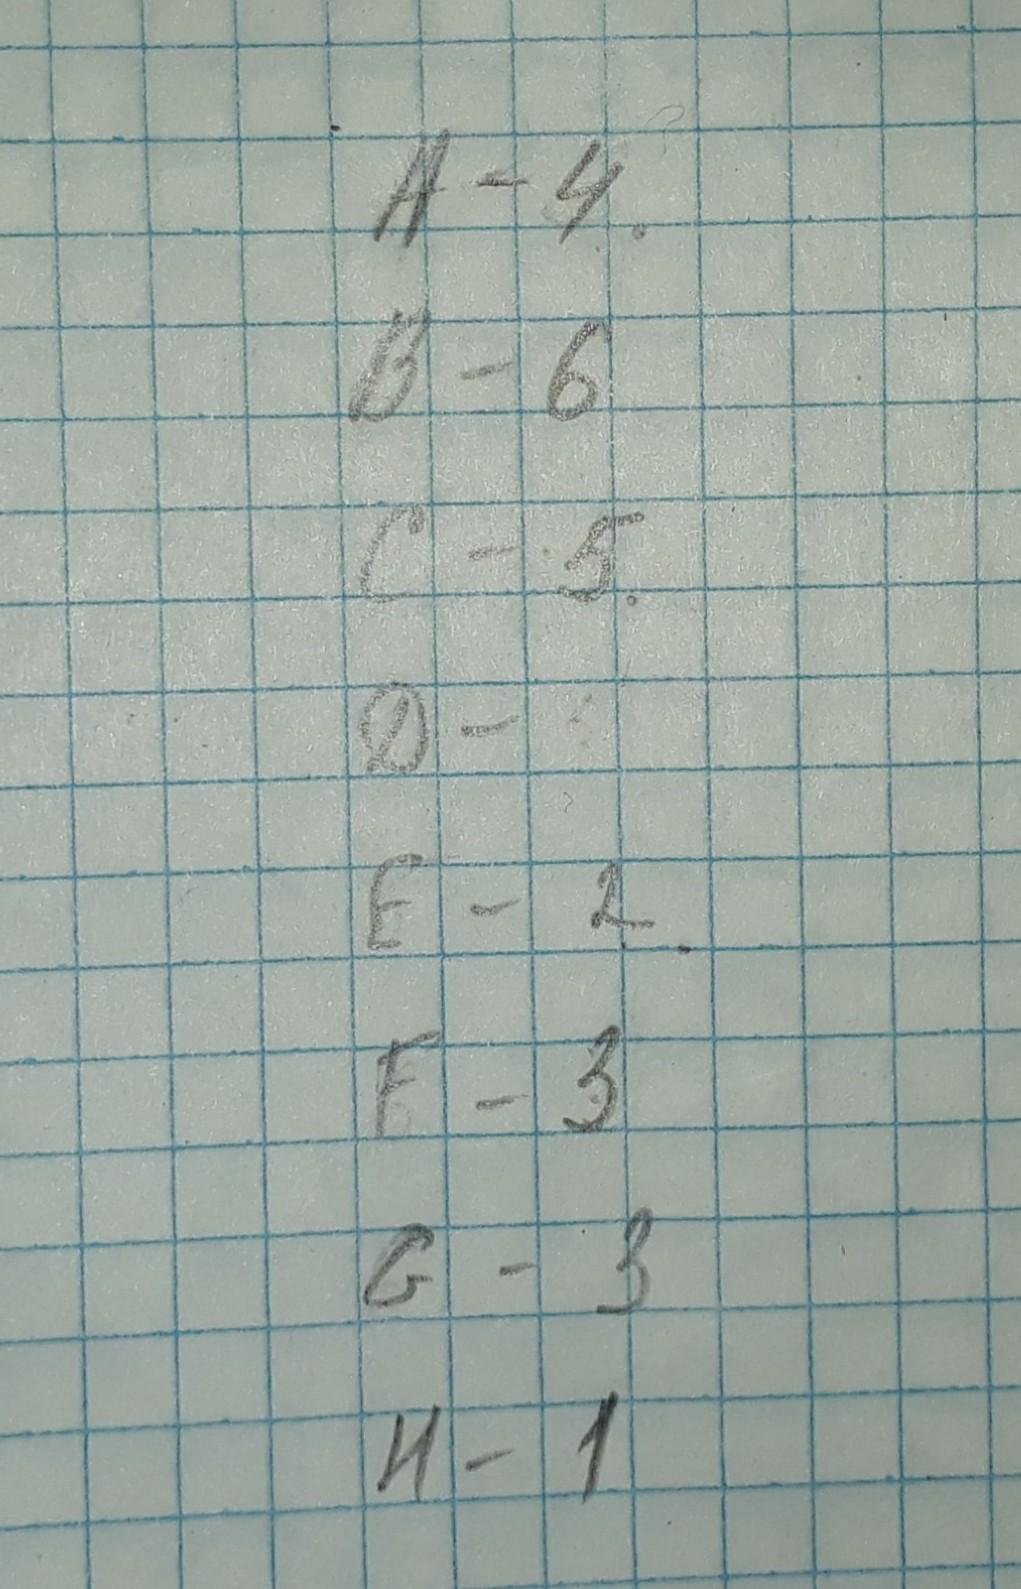 A - 4.
B - 6
C - 5.
D -
E - 2.
F - 3
G - 3
H - 1